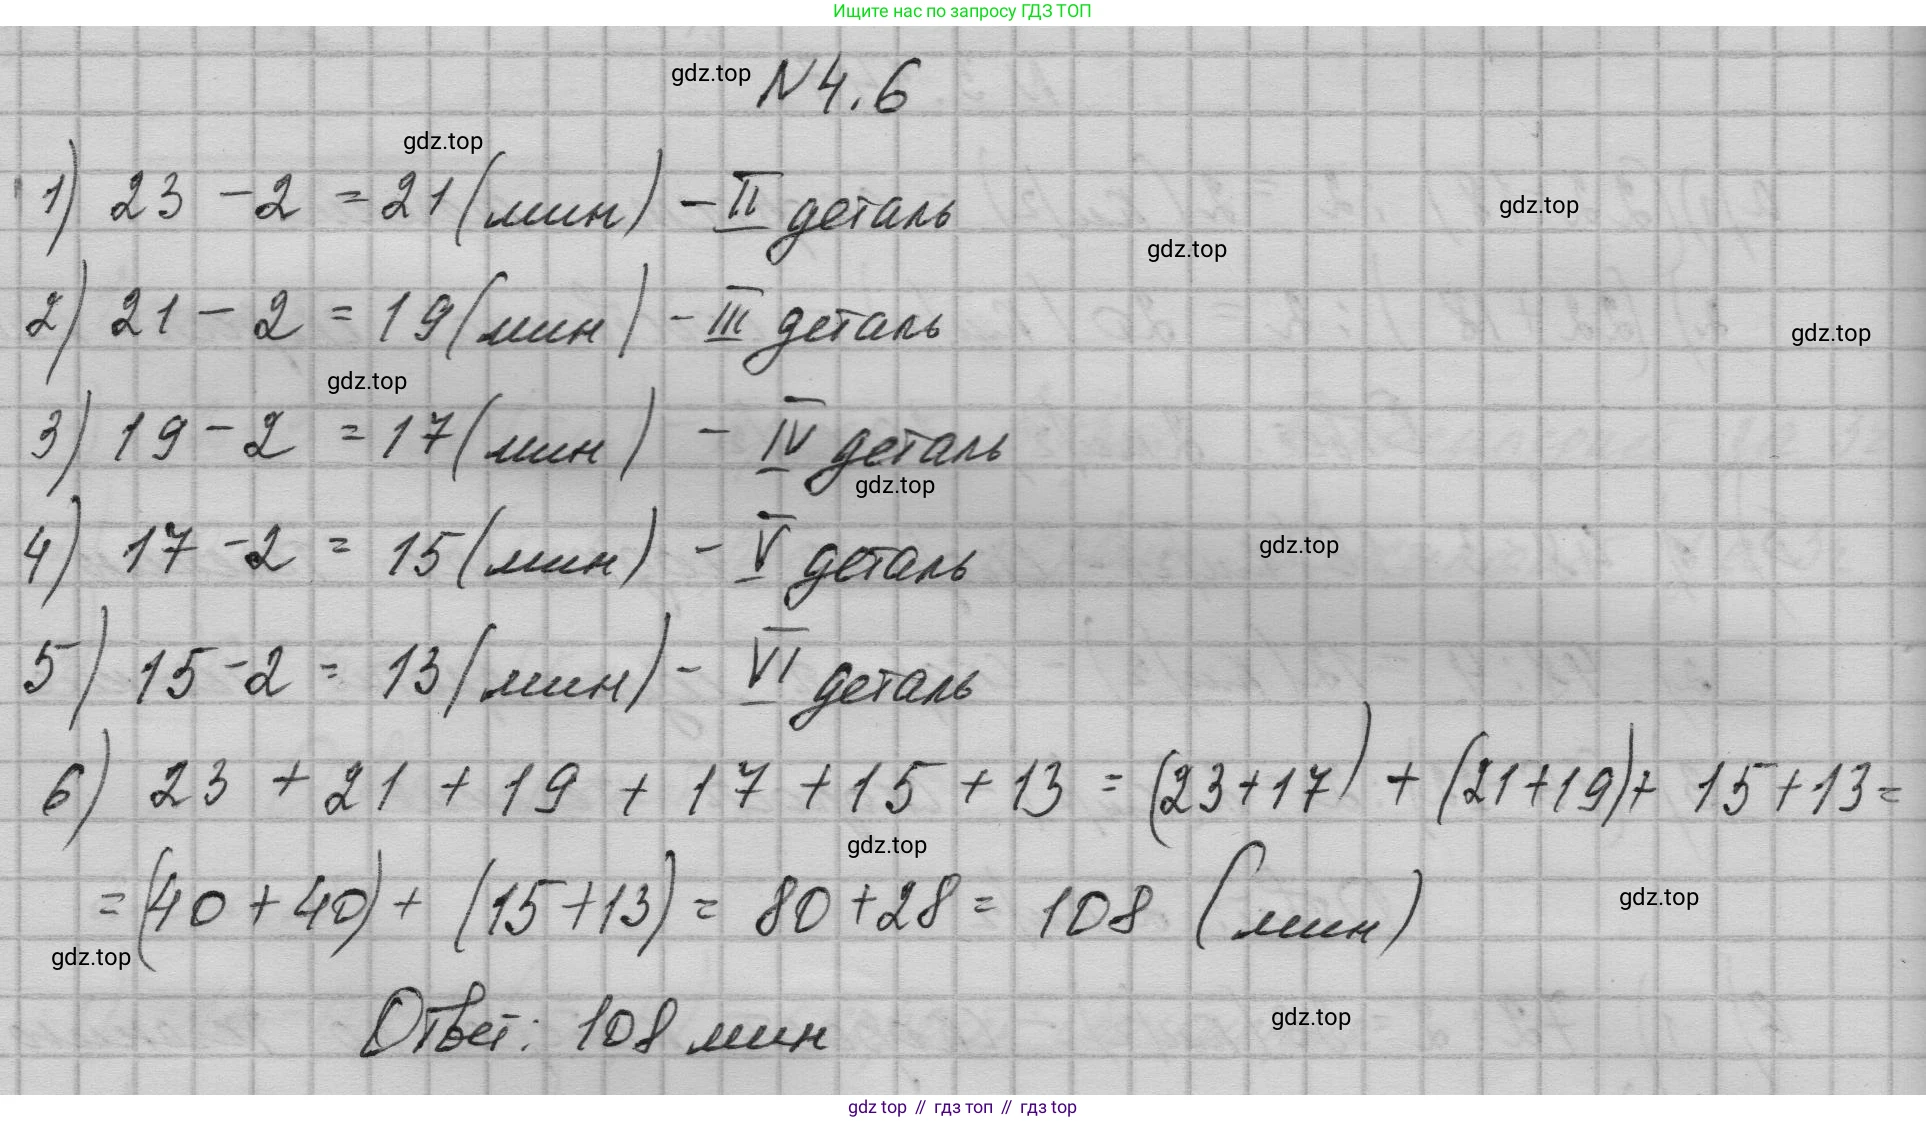 Ищите нас по запросу ГДЗ ТОП
gdz.top N 4.6
gdz.top
1) 23 - 2 = 21 (мин) - II деталь
gdz.top
gdz.top
2) 21 - 2 = 19 (мин) - III деталь
gdz.top
gdz.top
3) 19 - 2 = 17 (мин) - IV деталь
gdz.top
4) 17 - 2 = 15 (мин) - V деталь
gdz.top
5) 15 - 2 = 13 (мин) - VI деталь
6) 23 + 21 + 19 + 17 + 15 + 13 = (23+17) + (21+19) + 15 + 13 =
gdz.top
= (40 + 40) + (15 + 13) = 80 + 28 = 108 (мин)
gdz.top
gdz.top
Ответ: 108 мин
gdz.top
gdz top // гдз топ // гдз top